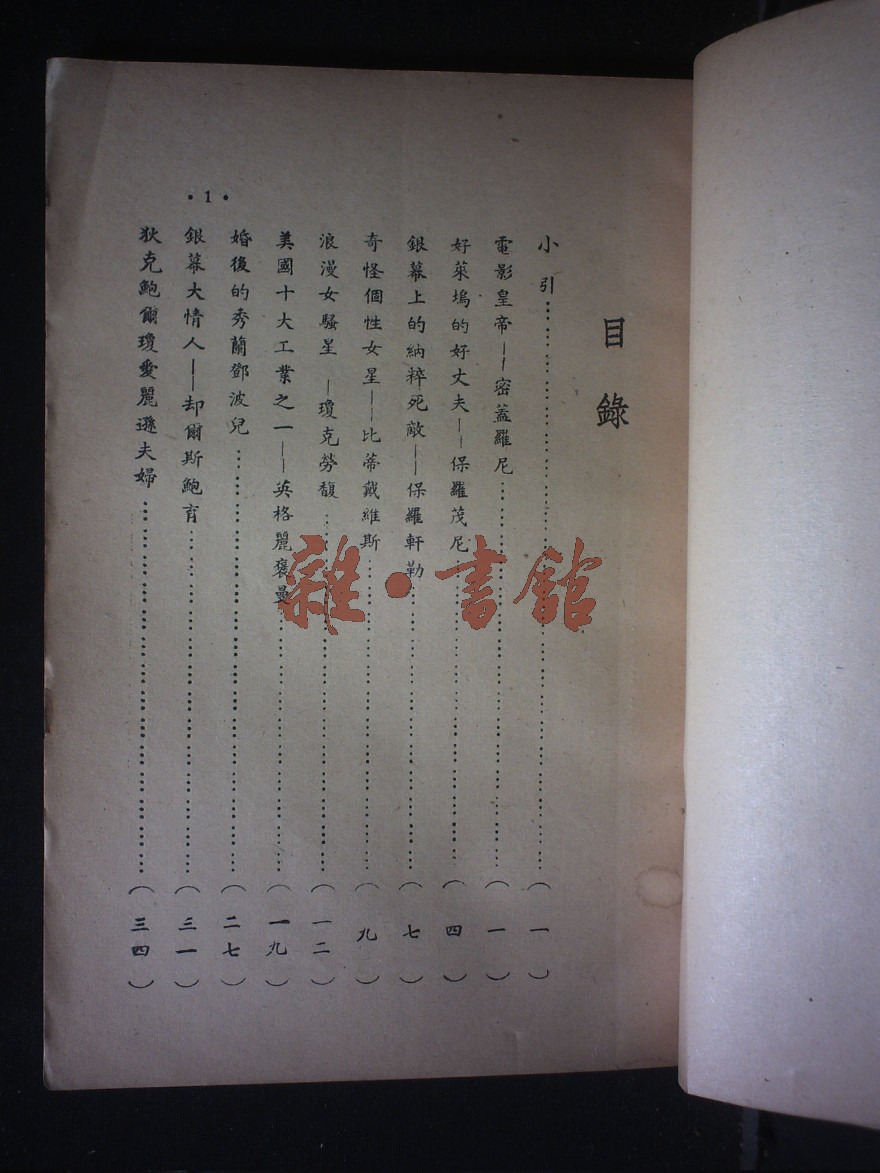 目錄
小引……………………(一)
電影皇帝——密蓋羅尼……………………(一)
好萊塢的好丈夫——保羅茂尼……………………(四)
銀幕上的納粹死敵——保羅軒勒……………………(七)
奇怪個性女星——比蒂戴維斯……………………(九)
浪漫女騷星—瓊克勞馥……………………(一二)
美國十大工業之一——英格麗褒曼……………………(一九)
婚後的秀蘭鄧波兒……………………(二七)
銀幕大情人——却爾斯鮑育……………………(三一)
狄克鮑爾瓊愛麗遜夫婦……………………(三四)
•1•
雜·書館